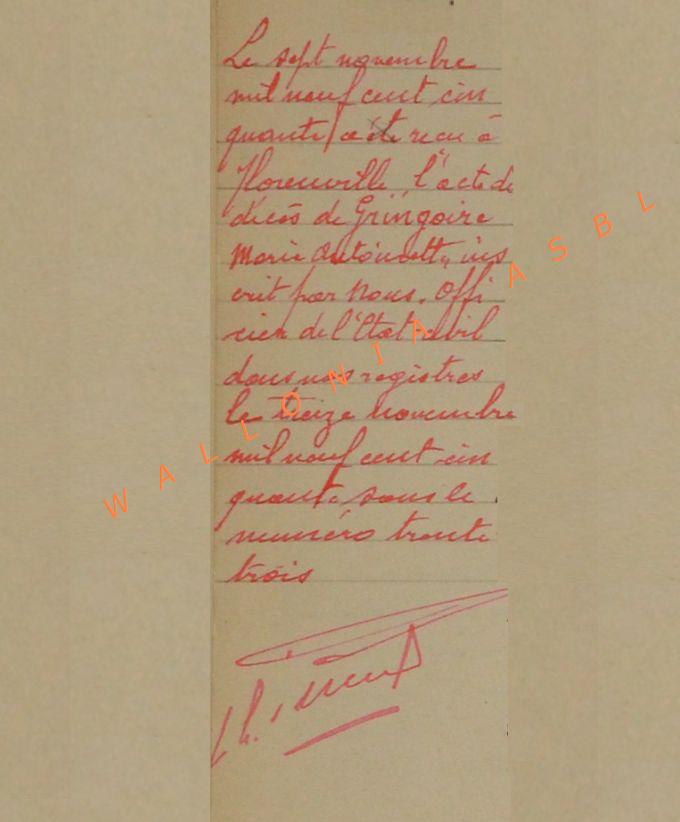 Le sept novembre
mil neuf cent cin
quante a été reçu à
Florenville, l'acte de
décès de Gringoire
Marie Antoinette, ins
crit par Nous, Offi
cier de l'Etat civil
dans nos registres
le treize novembre
mil neuf cent cin
quante sous le
numéro trente
trois
WALLONIA ASBL